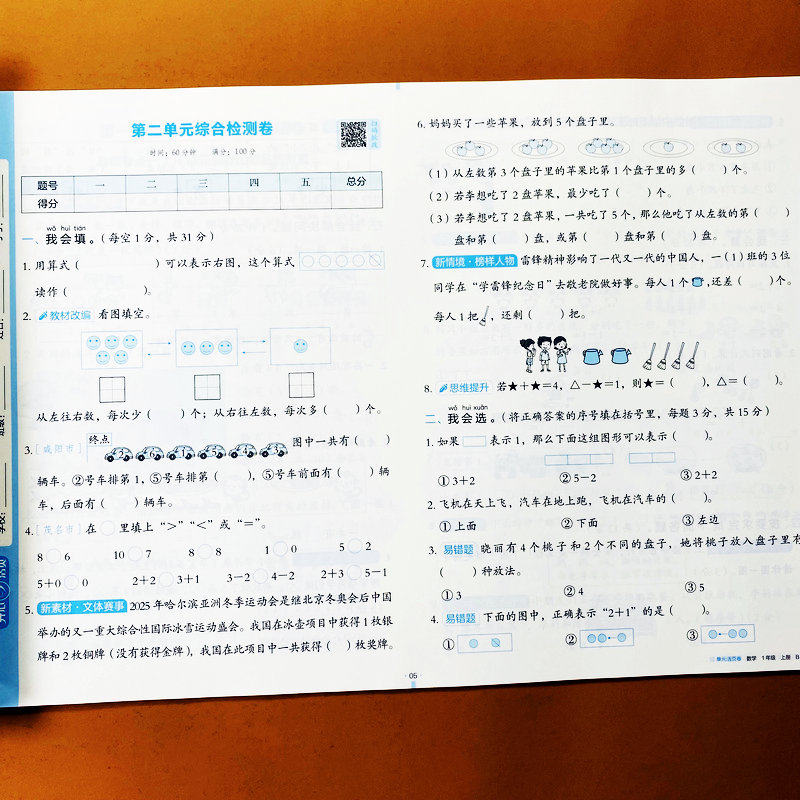 第二单元综合检测卷
时间：60分钟 满分：100分
扫码批改
题号 一 二 三 四 五 总分
得分
wǒ huì tián
一、我会填。(每空1分，共31分)
1. 用算式（ ）可以表示右图，这个算式
读作（ ）。
2. 教材改编 看图填空。
从左往右数，每次少（ ）个；从右往左数，每次多（ ）个。
3. [咸阳市] 终点 图中一共有（ ）
辆车。②号车排第1，⑤号车排第（ ），⑤号车前面有（ ）辆
车，后面有（ ）辆车。
4. [茂名市] 在○里填上“>”“<”或“=”。
8○6 10○7 8○8 1○0 5○2
5+0○0 2+2○3+1 3-2○4-2 2+3○5-1
5. 新素材·文体赛事 2025年哈尔滨亚洲冬季运动会是继北京冬奥会后中国
举办的又一重大综合性国际冰雪运动盛会。我国在冰壶项目中获得1枚银
牌和2枚铜牌（没有获得金牌），我国在此项目中一共获得（ ）枚奖牌。
· 05 ·
6. 妈妈买了一些苹果，放到5个盘子里。
(1) 从左数第3个盘子里的苹果比第1个盘子里的多（ ）个。
(2) 若李想吃了2盘苹果，最少吃了（ ）个。
(3) 若李想吃了2盘苹果，一共吃了5个，那么他吃了从左数的第（ ）
盘和第（ ）盘，或第（ ）盘和第（ ）盘。
7. 新情境·榜样人物 雷锋精神影响了一代又一代的中国人，一(1)班的3位
同学在“学雷锋纪念日”去敬老院做好事。每人1个 ,还差（ ）个。
每人1把 ，还剩（ ）把。
8. 思维提升 若★+★=4，△-★=1，则★=（ ），△=（ ）。
wǒ huì xuǎn
二、我会选。(将正确答案的序号填在括号里，每题3分，共15分)
1. 如果 表示1，那么下面这组图形可以表示（ ）。
①3+2 ②5-2 ③2+2
2. 飞机在天上飞，汽车在地上跑，飞机在汽车的（ ）。
①上面 ②下面 ③左边
3. 易错题 晓丽有4个桃子和2个不同的盘子，她将桃子放入盘子里有
（ ）种放法。
①3 ②4 ③5
4. 易错题 下面的图中，正确表示“2+1”的是（ ）。
① ② ③
单元活页卷 数学 1年级 上册 B